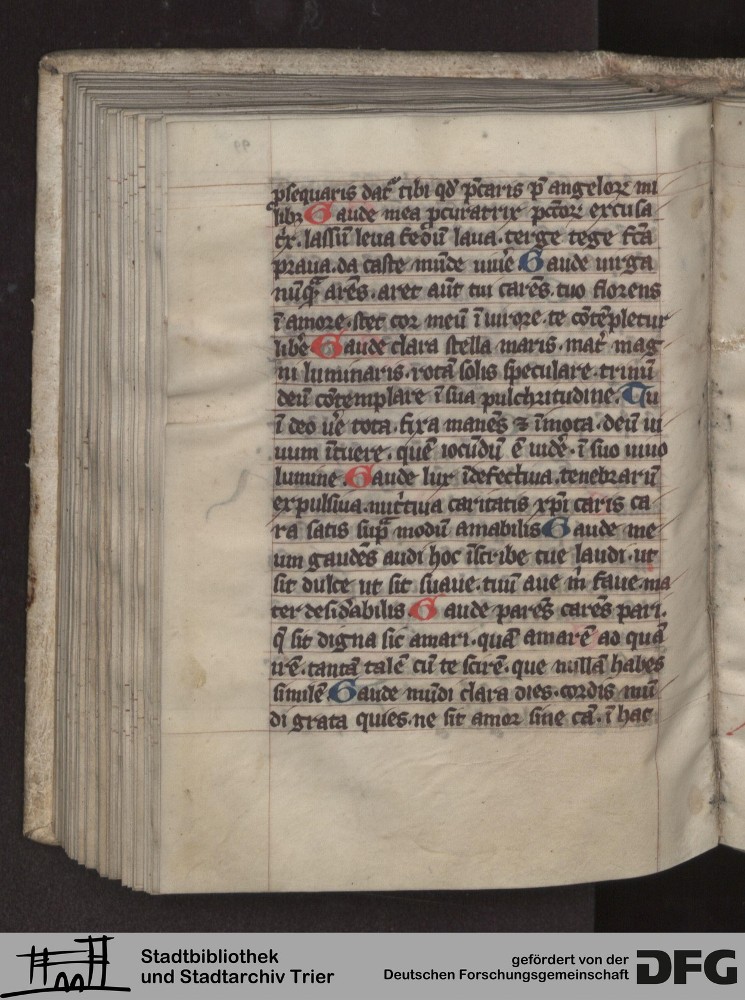 psequaris dat᷑ tibi qd̓ p̄caris p̄ angeloꝝ mi
libꝫ Gaude mea pcuratrix pctoꝝ excusa
t᷑x. lassū leua fedū laua. terge tege fc̄a
praua. da caste mūde uiūe Gaude uirga
nūq̄ arēs. aret aūt tui carēs. tuo florens
ī amore. stet cor meū ī uirore. te cōtēpletur
libē Gaude clara stella maris. mat᷑ mag
ni luminaris. rotā solis speculare. trinū
deū cōtemplare ī sua pulchritudine. Tu
ī deo ūe tota. fixa manēs ⁊ īmota. deū ui
uum ītuere. quē iocūdū ē uidē. ī suo uiuo
lumine. Gaude lux īdefectiua. tenebrarū
expulsiua. nut᷑tiua caritatis xp̄i caris ca
ra satis sup̄ modū amabilis Gaude me
um gaudēs audi hoc īscribe tue laudi. ut
sit dulce ut sit suaue. tuū aue m̄ faue. ma
ter desid̓abilis. Gaude parēs carēs pari.
q̄ sit digna sic amari. quā amarē ad quā
irē. tantā talē cū te scirē. que nullā habes
similē Gaude mūdi clara dies. cordis mū
di grata quies. ne sit amor sine cā. ī hac
Stadtbibliothek
und Stadtarchiv Trier
gefördert von der
Deutschen Forschungsgemeinschaft
DFG